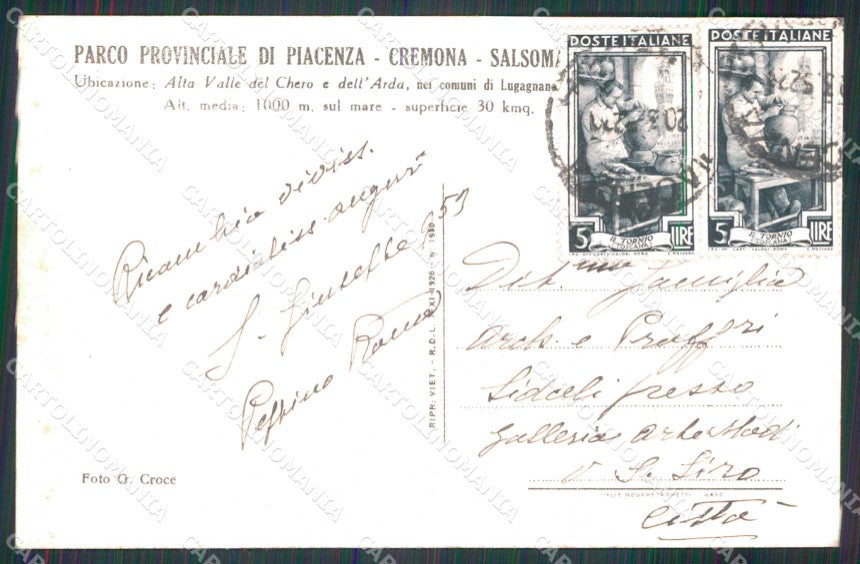 PARCO PROVINCIALE DI PIACENZA - CREMONA - SALSOMA
Ubicazione: Alta Valle del Chero e dell'Arda, nei comuni di Lugagnana
Alt. media: 1000 m. sul mare - superficie 30 kmq.
POSTE ITALIANE
5 IL TORNIO LIRE
POSTE ITALIANE
5 IL TORNIO LIRE
Ricambia viviss.
e cordialiss. auguri
S. Giuseppe 53
Peppino Roma
RIPR. VIET. - R.D.L. XI-1926 - N. 1950
Famiglia
Arch. e Proff.ri
Sidoli presso
Galleria Arte Modi
V. S. Siro
Città
Foto G. Croce
CARTOLINOMANIA